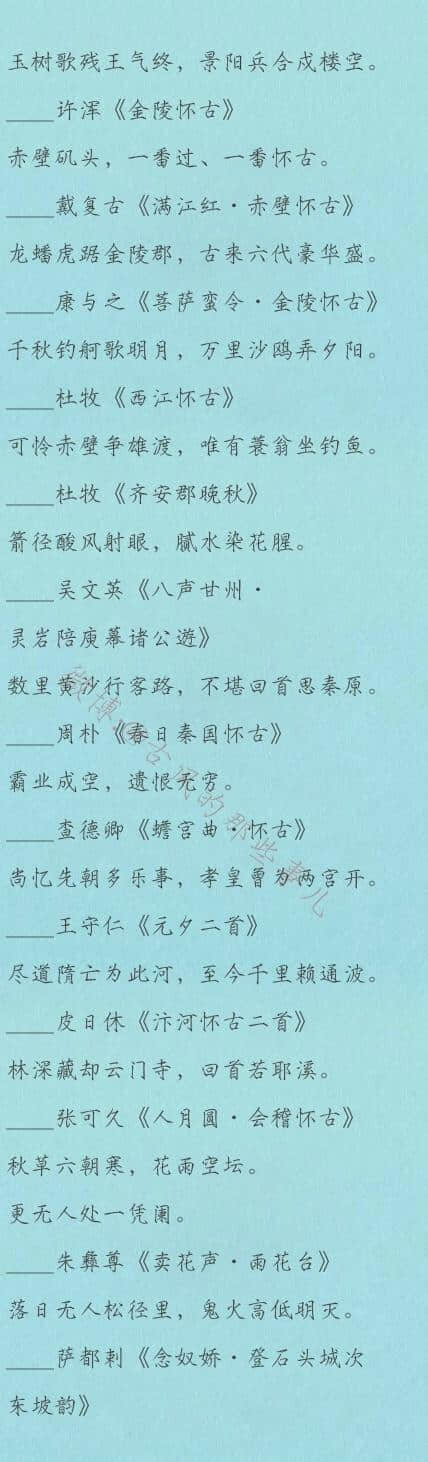 玉树歌残王气终，景阳兵合戍楼空。
____许浑《金陵怀古》
赤壁矶头，一番过、一番怀古。
____戴复古《满江红·赤壁怀古》
龙蟠虎踞金陵郡，古来六代豪华盛。
____康与之《菩萨蛮令·金陵怀古》
千秋钓舸歌明月，万里沙鸥弄夕阳。
____杜牧《西江怀古》
可怜赤壁争雄渡，唯有蓑翁坐钓鱼。
____杜牧《齐安郡晚秋》
箭径酸风射眼，腻水染花腥。
____吴文英《八声甘州·
灵岩陪庾幕诸公遊》
数里黄沙行客路，不堪回首思秦原。
____周朴《春日秦国怀古》
霸业成空，遗恨无穷。
____查德卿《蟾宫曲·怀古》
尚忆先朝多乐事，孝皇曾为两宫开。
____王守仁《元夕二首》
尽道隋亡为此河，至今千里赖通波。
____皮日休《汴河怀古二首》
林深藏却云门寺，回首若耶溪。
____张可久《人月圆·会稽怀古》
秋草六朝寒，花雨空坛。
更无人处一凭阑。
____朱彝尊《卖花声·雨花台》
落日无人松径里，鬼火高低明灭。
____萨都剌《念奴娇·登石头城次
东坡韵》
微博@古风的那些事儿